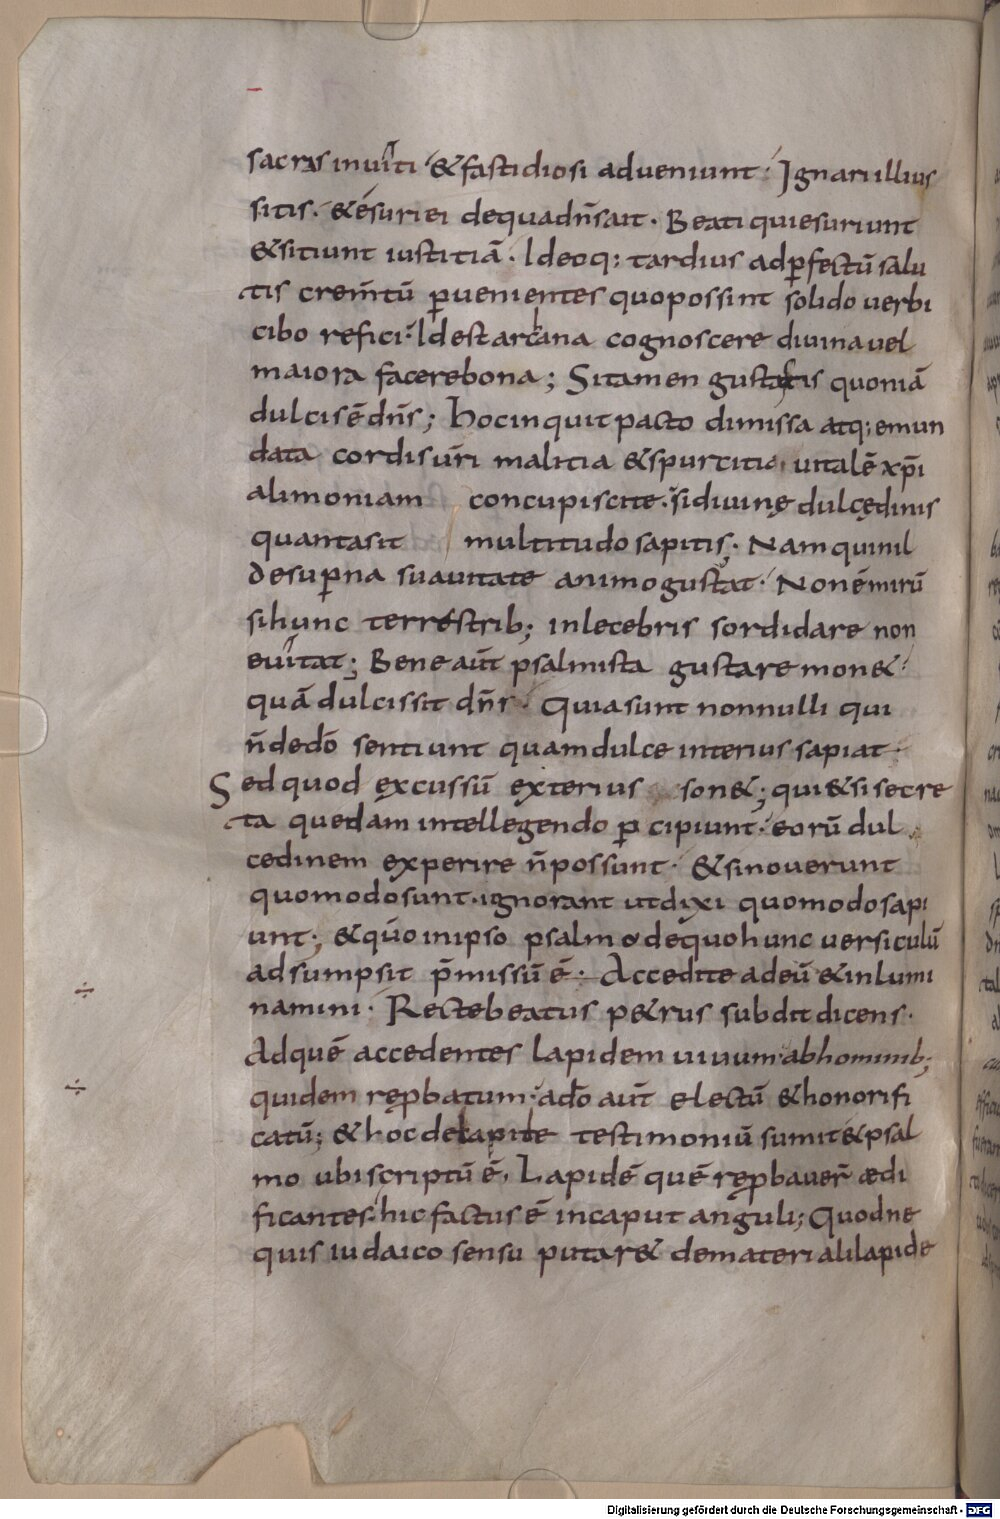 sacris inviti & fastidiosi adveniunt· Ignari illius
sitis· & esuriei de qua dn̄s ait· Beati qui esuriunt
& sitiunt iustitiā· Ideoq: tardius ad ꝑfectū salu
tis crem̄tū ꝑvenientes quo possint solido verbi
cibo refici· Id est archana cognoscere divina vel
maiora facere bona; Si tamen gustastis quoniā
dulcis ē dn̄s; Hoc inquit pacto dimissa atq: emun
data cordis ur̄i malitia & spurcitia vitalē xp̄i
alimoniam concupiscite· si divinę dulcędinis
quanta sit multitudo sapitis; Nam qui nil
de suꝑna suavitate animo gustat· Non ē mirū
si hunc terrestrib; inlecebris sordidare non
evitat; Bene aūt psalmista gustare mon&·
quā dulcis sit dn̄s· Quia sunt nonnulli qui
n̄ de dō sentiunt quam dulce interius sapiat·
Sed quod excussū exterius son&; qui & si secre
ta quedam intellegendo ꝑcipiunt· eorū dul
cedinem experire n̄ possunt· & si noverunt
quomodo sunt· ignorant ut dixi quomodo sapi
unt; & qūo in ipso psalmo de quo hunc versiculū
adsumpsit p̄missū ē· Accedite ad eū & inlumi
namini· Recte beatus p&rus subdit dicens·
Ad quē accedentes lapidem vivum· ab hominib;
quidem reꝓbatum· a dō aūt electū & honorifi
catū; & hoc de lapide testimoniū sumit & psal
mo ubi scriptū ē· Lapidē quē reꝓbaver̄ ædi
ficantes· hic factus ē in caput anguli; Quod ne
quis iudaico sensu putar& de materiali lapide
Digitalisierung gefördert durch die Deutsche Forschungsgemeinschaft - DFG